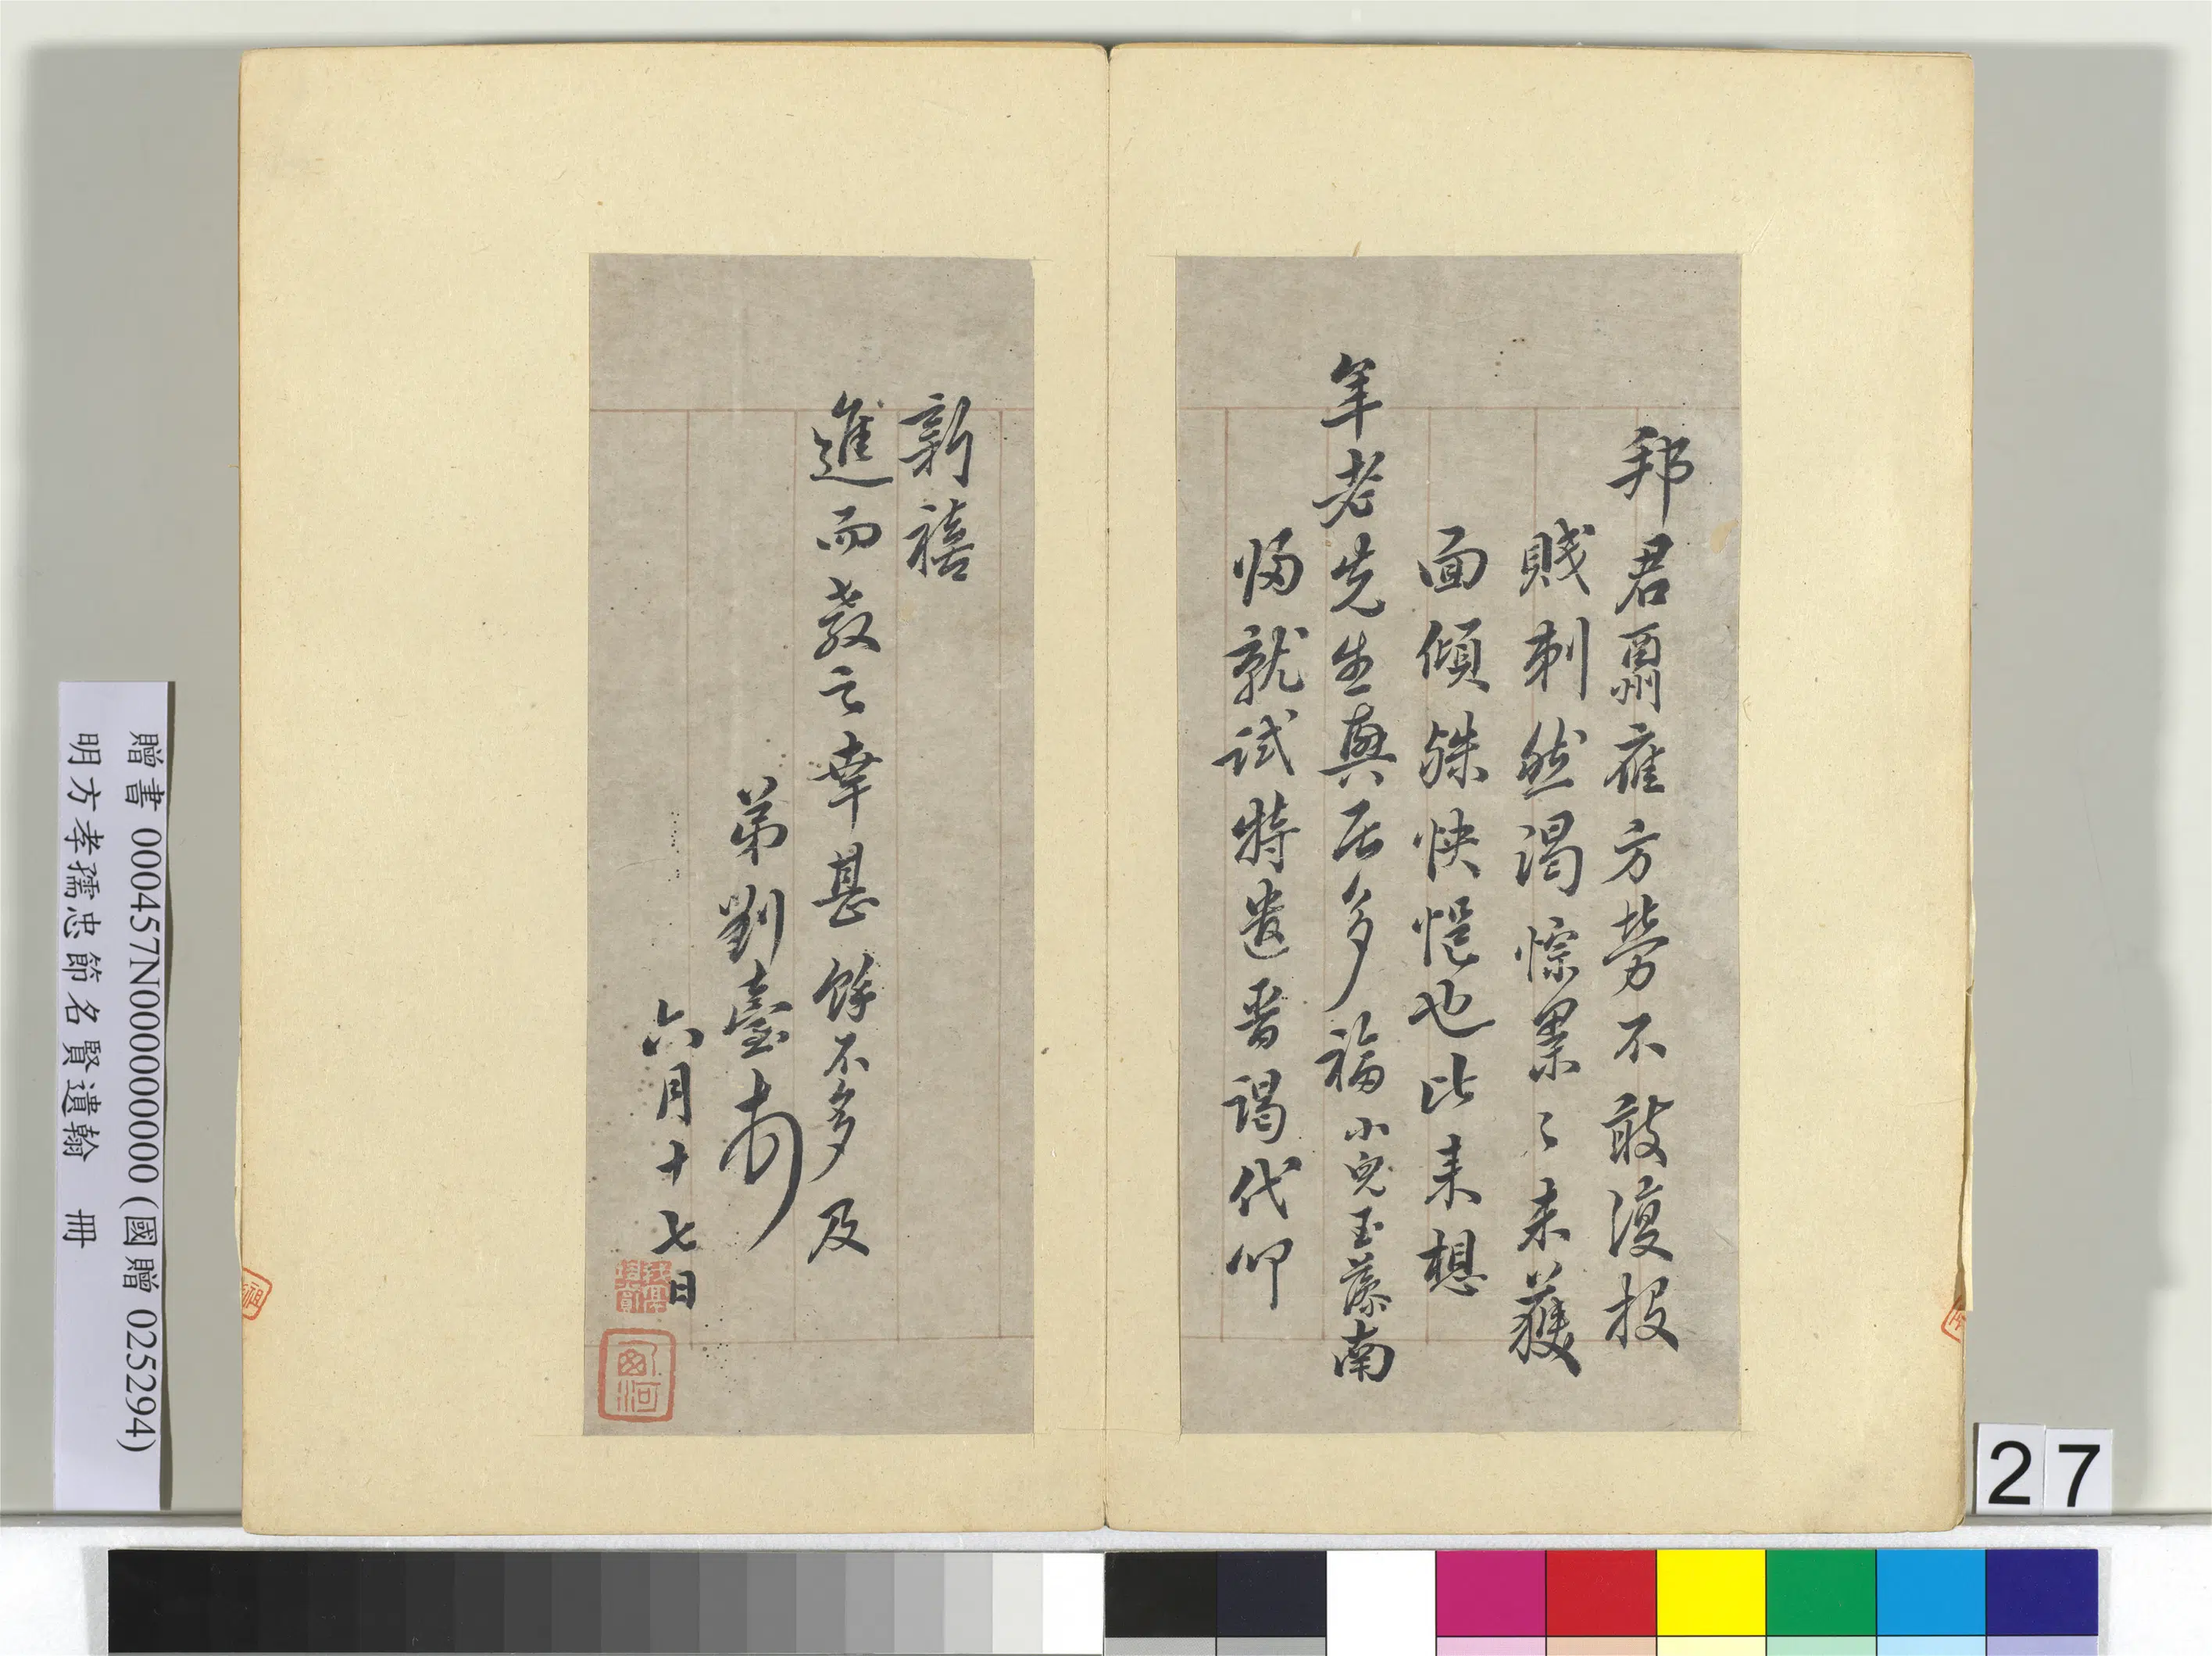 邦君
方勞不敢復投
賤刺然渴悰累〻未獲
面傾殊怏悒也比來想
年老先生興居多福小兒玉藻南
歸就試特遣晋謁代叩
新禧
進而教之幸甚餘不多及
弟劉臺
六月十七日
贈書 000457N000000000 (國贈 025294)
明方孝孺忠節名賢遺翰 冊
27